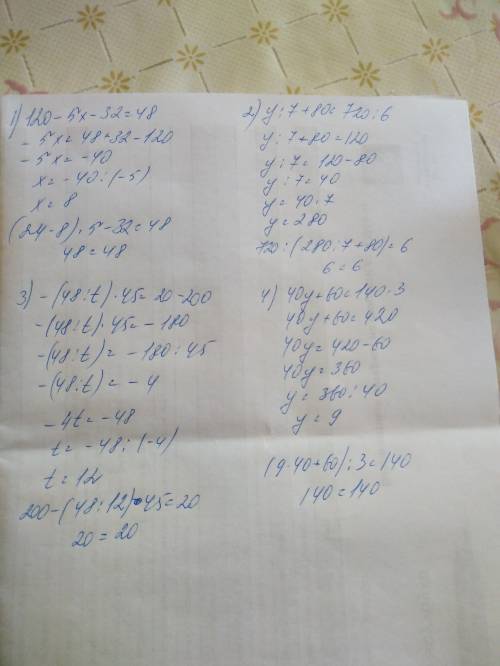 1) 120-5x-32=48
-5x=48+32-120
-5x=-40
x=-40:(-5)
x=8
(24-8)·5-32=48
48=48
2) y:7+80=720:6
y:7+80=120
y:7=120-80
y:7=40
y=40·7
y=280
720:(280:7+80)=6
6=6
3) -(48:t)·45=20-200
-(48:t)·45=-180
-(48:t)=-180:45
-(48:t)=-4
-4t=-48
t=-48:(-4)
t=12
200-(48:12)·45=20
20=20
4) 40y+60=140·3
40y+60=420
40y=420-60
40y=360
y=360:40
y=9
(9·40+60):3=140
140=140